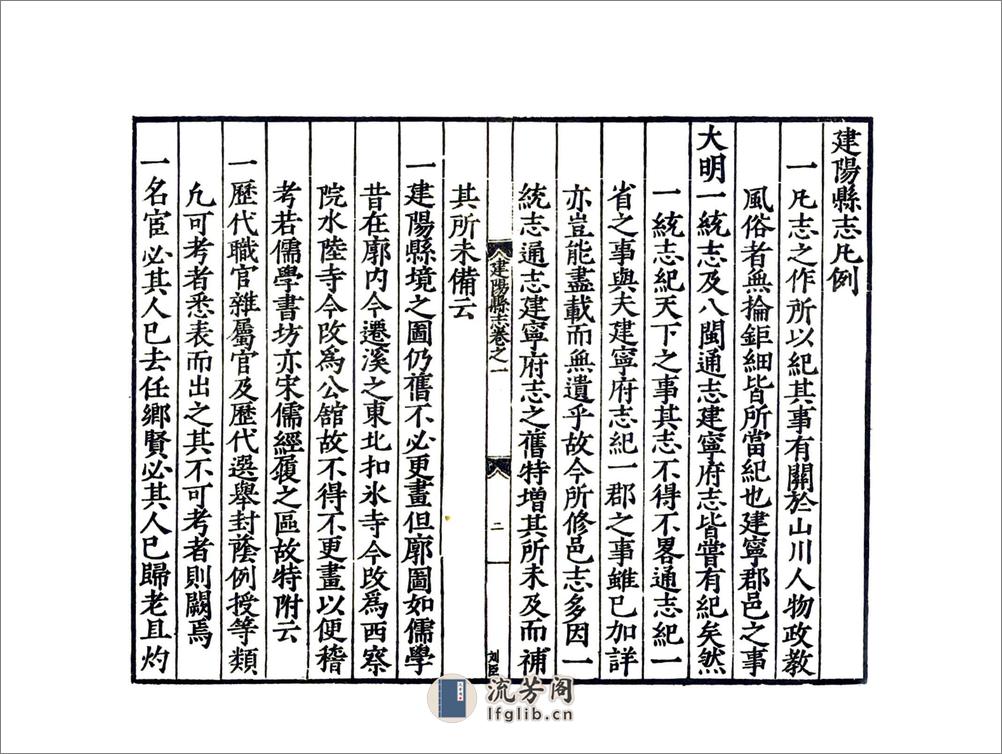 建陽縣志凡例
一凡志之作所以紀其事有關於山川人物政教
風俗者無掄鉅細皆所當紀也建寧郡邑之事
大明一統志及八閩通志建寧府志皆嘗有紀矣然
一統志紀天下之事其志不得不畧通志紀一
省之事與夫建寧府志紀一郡之事雖已加詳
亦豈能盡載而無遺乎故今所修邑志多因一
統志通志建寧府志之舊特增其所未及而補
其所未備云
建陽縣志卷之一
二
一建陽縣境之圖仍舊不必更畫但廓圖如儒學
昔在廓内今遷溪之東北扣氷寺今改為西察
院水陸寺今改為公舘故不得不更畫以便稽
考若儒學書坊亦宋儒經履之區故特附云
一歷代職官雜屬官及歷代選舉封蔭例授等類
凡可考者悉表而出之其不可考者則闕焉
一名宦必其人已去任鄉賢必其人已歸老且灼
流芳阁
lfglib.cn